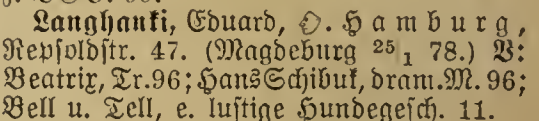 Langhanki, Eduard, ✆. Hamburg,
Repsoldstr. 47. (Magdeburg 25/1 78.) V:
Beatrix, Tr. 96; Hans Schibuk, dram. M. 96;
Bell u. Tell, e. lustige Hundegesch. 11.